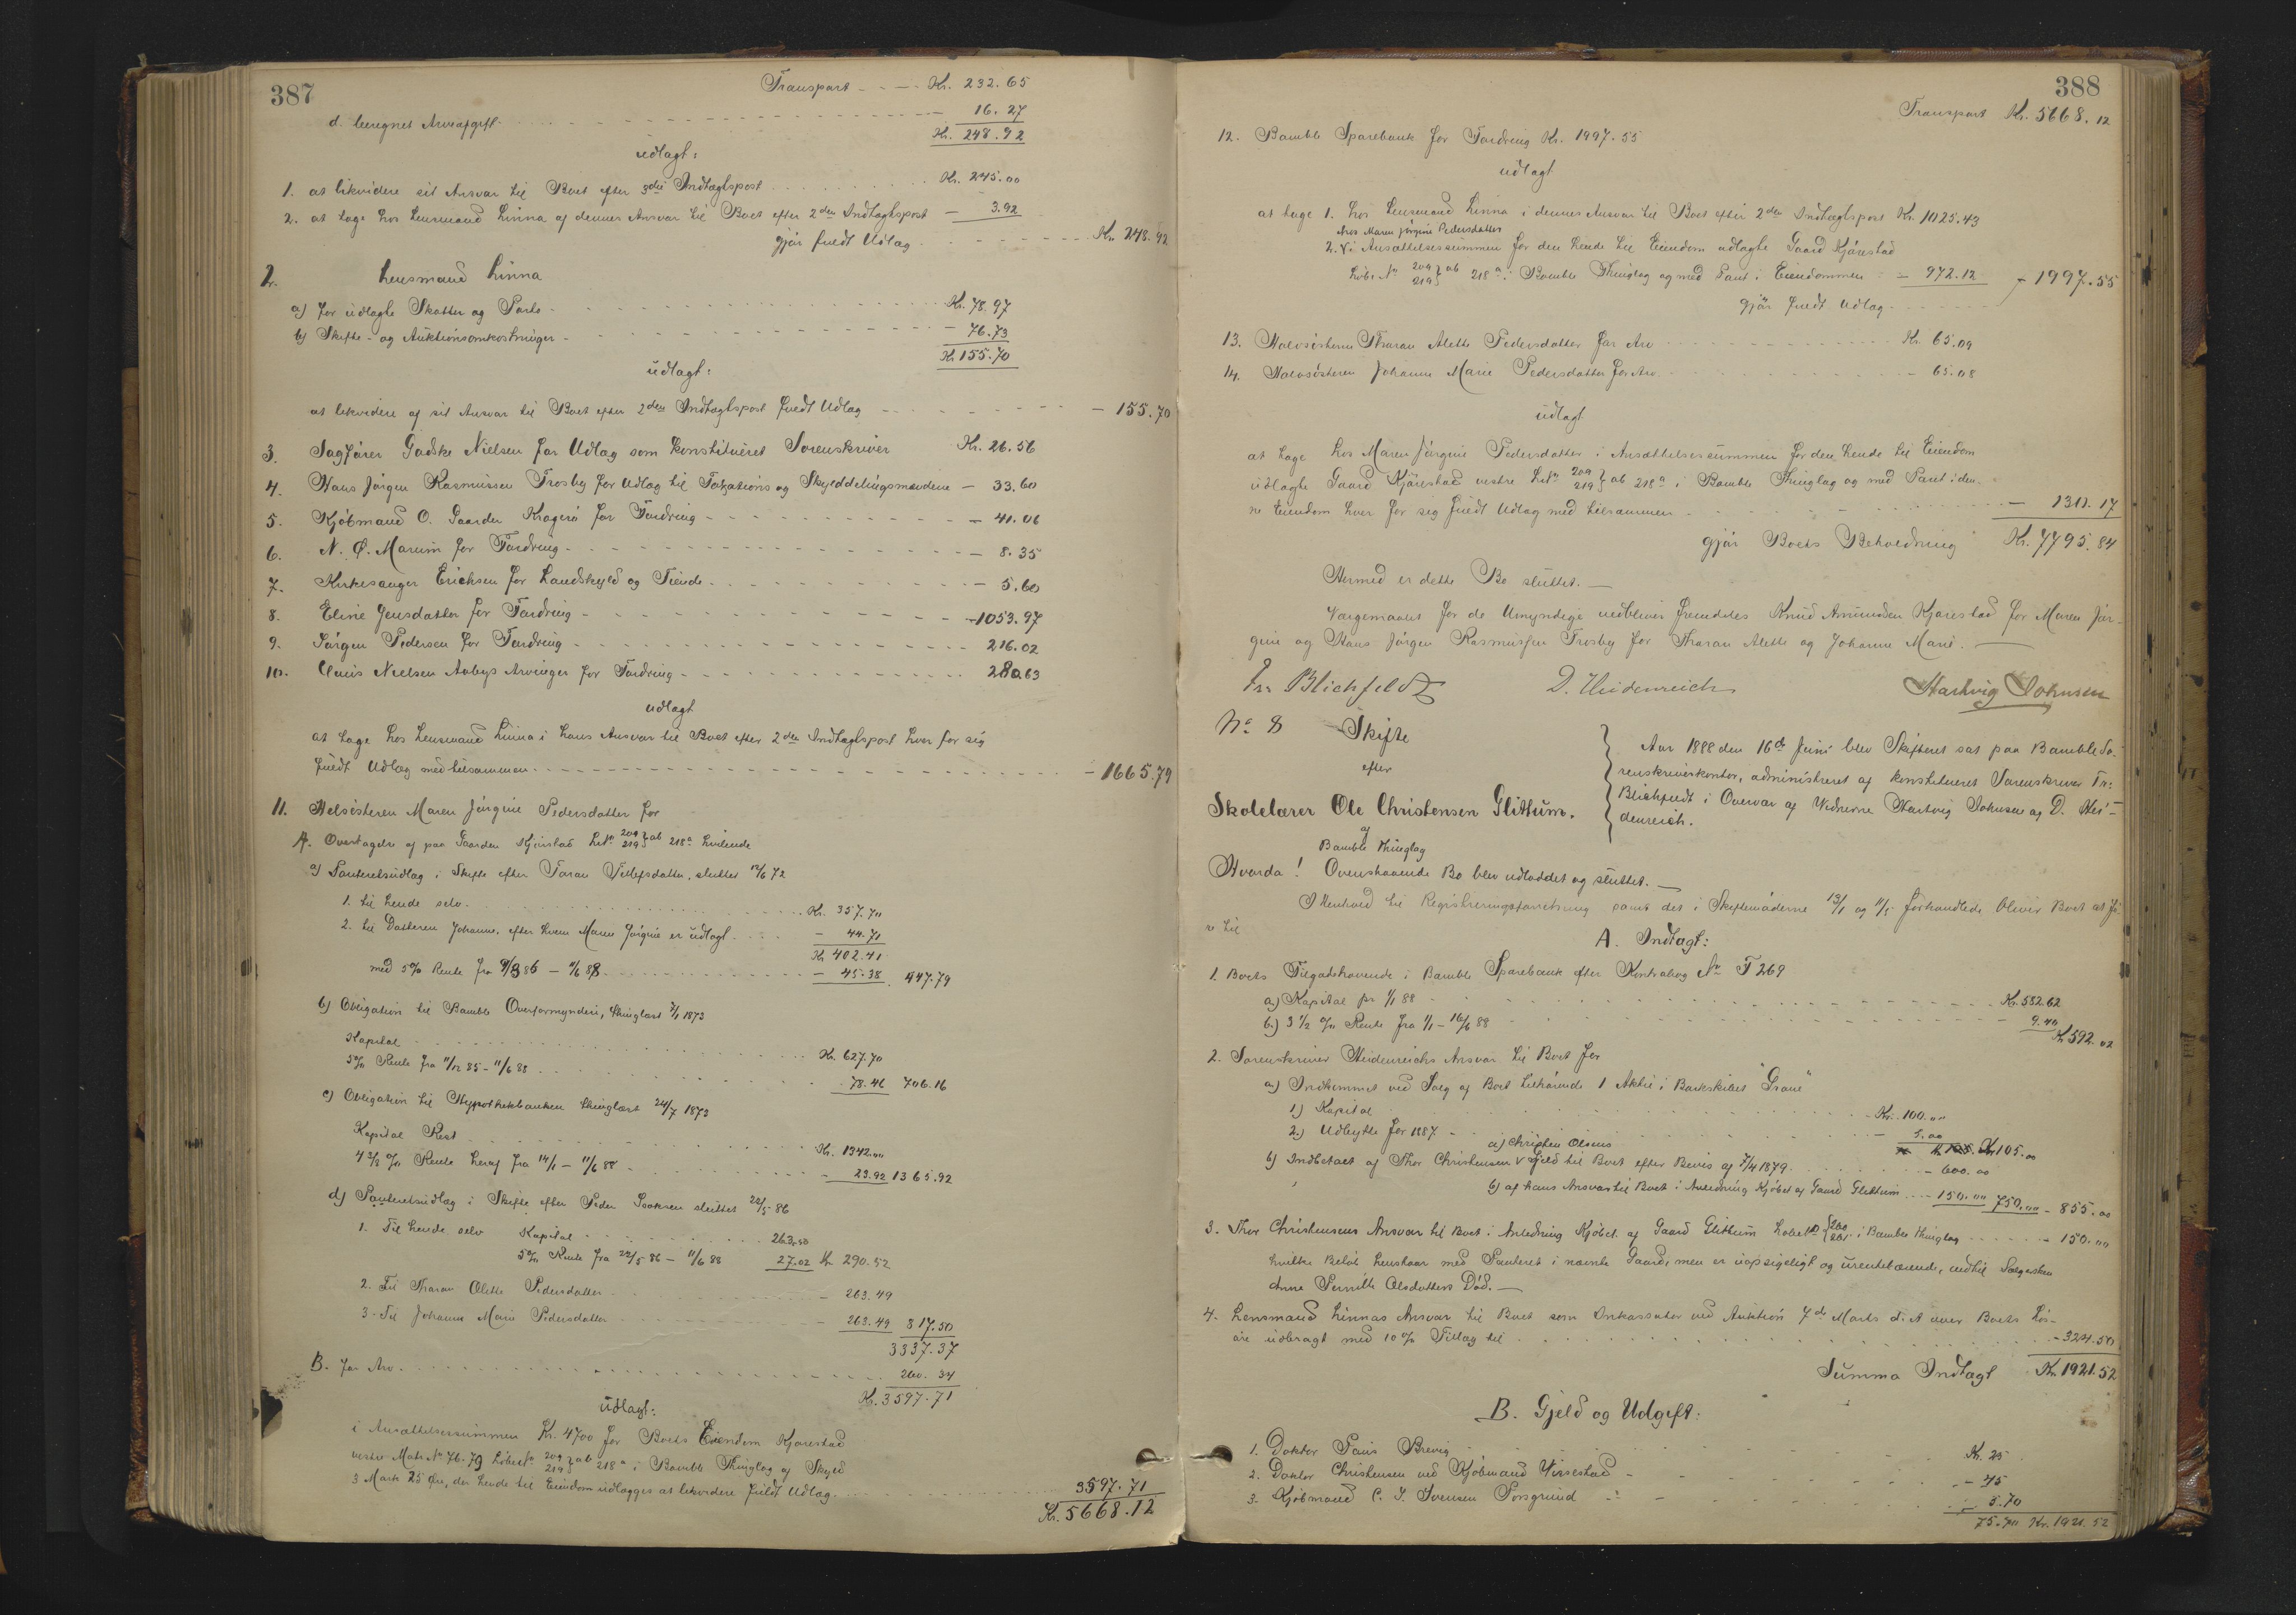 387
Transport - - - Kr. 232.65
d. beregnet Arveafgift - - - - 16.27
Kr. 248.92
udlagt:
1. at likvidere sit Ansvar til Boet efter 3die Indtægtspost Kr. 245.00
2. at tage hos Lensmand Linna af dennes Ansvar til Boet efter 2den Indtægtspost - 3.92
gjør fuldt Udlæg - - - Kr. 248.92
2. Lensmand Linna
a) for udlagte Skatter og Porto - - - Kr. 78.97
b) Skifte- og Auktionsomkostninger - - - 76.73
Kr. 155.70
udlagt:
at likvidere af sit Ansvar til Boet efter 2den Indtægtspost fuldt Udlæg - - - 155.70
3. Sagfører Gadske Nielsen for Udlæg som konstitueret Sorenskriver Kr. 26.56
4. Hans Jørgen Rasmussen Trosby for Udlæg til Taxations og Skylddelingsmændene - 33.60
5. Kjøbmand O. Gaarder Kragerø for Fordring - - - 41.06
6. N. O. Marum for Fordring - - - 8.35
7. Kirkesanger Erichsen for Landskyld og Tiende - - - 5.60
8. Eline Jensdatter for Fordring - - - 1053.97
9. Jørgen Pedersen for Fordring - - - 216.02
10. Claus Nielsen Aabys Arvinger for Fordring - - - 280.63
udlagt
at tage hos Lensmand Linna i hans Ansvar til Boet efter 2den Indtægtspost hver for sig
fuldt Udlæg med tilsammen - - - 1665.79
11. Helsøsteren Maren Jørgine Pedersdatter for
A. Overtagelse af paa Gaarden Kjørstad LNo 209 219 } ab 218a hvilende
a) Panteretsudlæg i Skifte efter Taran Tellefsdatter, sluttet 12/6 72
1. til hende selv - - - Kr. 357.70
2. til Datteren Johanne, efter hvem Maren Jørgine er udlagt - - - 44.71
Kr. 402.41
med 5% Rente fra 9/3 86 - 11/6 88 - - - 45.38 447.79
b) Obligation til Bamble Overformynderi, thinglæst 7/1 1873
Kapital - - - Kr. 627.70
5% Rente fra 11/12 85 - 11/6 88 - - - 78.46 706.16
c) Obligation til Hypothekbanken thinglæst 24/7 1873
Kapital Rest - - - Kr. 1342.00
4 3/8 % Rente heraf fra 14/1 - 11/6 88 - - - 23.92 1365.92
d) Panteretsudlæg i Skifte efter Peder Isaksen sluttet 22/5 86
1. Til hende selv Kapital - - - 263.50
5% Rente fra 22/5 86 - 11/6 88 27.02 Kr. 290.52
2. Til Tharan Alette Pedersdatter - - - 263.49
3. Til Johanne Marie Pedersdatter - - - 263.49 817.50
3337.37
B. For Arv - - - 260.34
Kr. 3597.71
udlagt:
i Ansættelsessummen Kr. 4700 for Boets Eiendom Kjørestad
vestre Matr No 76.79 Løbe No 209 219 } ab 218a i Bamble Thinglag af Skyld
3 Mark 25 Øre, der hende til Eiendom udlægges at likvidere fuldt Udlæg - - - 3597.71
Kr. 5668.12
388
Transport Kr. 5668.12
12. Bamble Sparebank for Fordring Kr. 1997.55
udlagt
at tage 1. hos Lensmand Linna i dennes Ansvar til Boet efter 2den Indtægtspost Kr. 1025.43
hos Maren Jørgine Pedersdatter
2. i Ansættelsessummen for den hende til Eiendom udlagte Gaard Kjørestad
Løbe No 209 219 } ab 218a i Bamble Thinglag og med Pant i Eiendommen - 972.12
gjør fuldt Udlæg - - - 1997.55
13. Halvsøsteren Tharan Alette Pedersdatter for Arv - - - Kr. 65.09
14. Halvsøsteren Johanne Marie Pedersdatter for Arv - - - 65.08
udlagt
at tage hos Maren Jørgine Pedersdatter i Ansættelsessummen for den hende til Eiendom
udlagte Gaard Kjørestad vestre LNo 209 219 } ab 218a i Bamble Thinglag og med Pant i den-
ne Eiendom hver for sig fuldt Udlæg med tilsammen - - - 130.17
gjør Boets Beholdning Kr. 7795.84
Hermed er dette Bo sluttet. —
Værgemaalet for de Umyndige vedbliver fremdeles Knud Amundsen Kjørestad for Maren Jør-
gine og Hans Jørgen Rasmussen Trosby for Tharan Alette og Johanne Marie. —
Fr. Blichfeldt D. Heidenreich Hartvig Johnsen
No 8 Skifte
efter
Skolelærer Ole Christensen Glittum.
af
Bamble Thinglag
Aar 1888 den 16de Juni blev Skifteret sat paa Bamble So-
renskriverkontor, administreret af konstitueret Sorenskriver Fr.
Blichfeldt i Overvær af Vidnerne Hartvig Johnsen og D. Hei-
denreich.
Hvorda! Ovenstaaende Bo blev udloddet og sluttet. —
I Henhold til Registreringsforretning samt det i Skiftemøderne 13/1 og 11/5 forhandlede bliver Boet at fø-
re til
A. Indtægt:
1. Boets Tilgodehavende i Bamble Sparebank efter Kontrabog No F 269
a) Kapital pr 1/1 88 - - - Kr. 582.62
b) 3 1/2 % Rente fra 1/1 - 16/6 88 - - - 9.40
Kr. 592.02
2. Sorenskriver Heidenreichs Ansvar til Boet for
a) Indkommet ved Salg af Boet tilhørende 1 Aktie i Barkskibet "Grane"
1) Kapital - - - Kr. 100.00
2) Udbytte for 1887 - - - 5.00
Kr. 105.00
a) Christen Olsens
b) Indbetalt af Thor Christensen v Gjeld til Boet efter Bevis af 7/4 1879 - - - 600.00
b) af hans Ansvar til Boet i Anledning Kjøbet af Gaard Glittum - - - 150.00 750.00 - 855.00
3. Thor Christensens Ansvar til Boet i Anledning Kjøbet af Gaard Glittum Løbe No { 200 201 i Bamble Thinglag - - - 150.00
hvilke Beløb henstaar med Panteret i nævnte Gaard, men er uopsigeligt og urentebærende, indtil Sælgersken
Anne Pernille Olsdatters Død. —
4. Lensmand Linnas Ansvar til Boet som Inkassator ved Auktion 7de Marts d. A over Boets Løs-
øre udbragt med 10% Tillæg til - - - 324.50
Summa Indtægt Kr. 1921.52
B. Gjeld og Udgift:
1. Doktor Paus Brevig - - - Kr. 25
2. Doktor Christensen ved Kjøbmand Virsestad - - - 45
3. Kjøbmand C. J. Iversen Porsgrund - - - 5.70
75.70 Kr. 1921.52